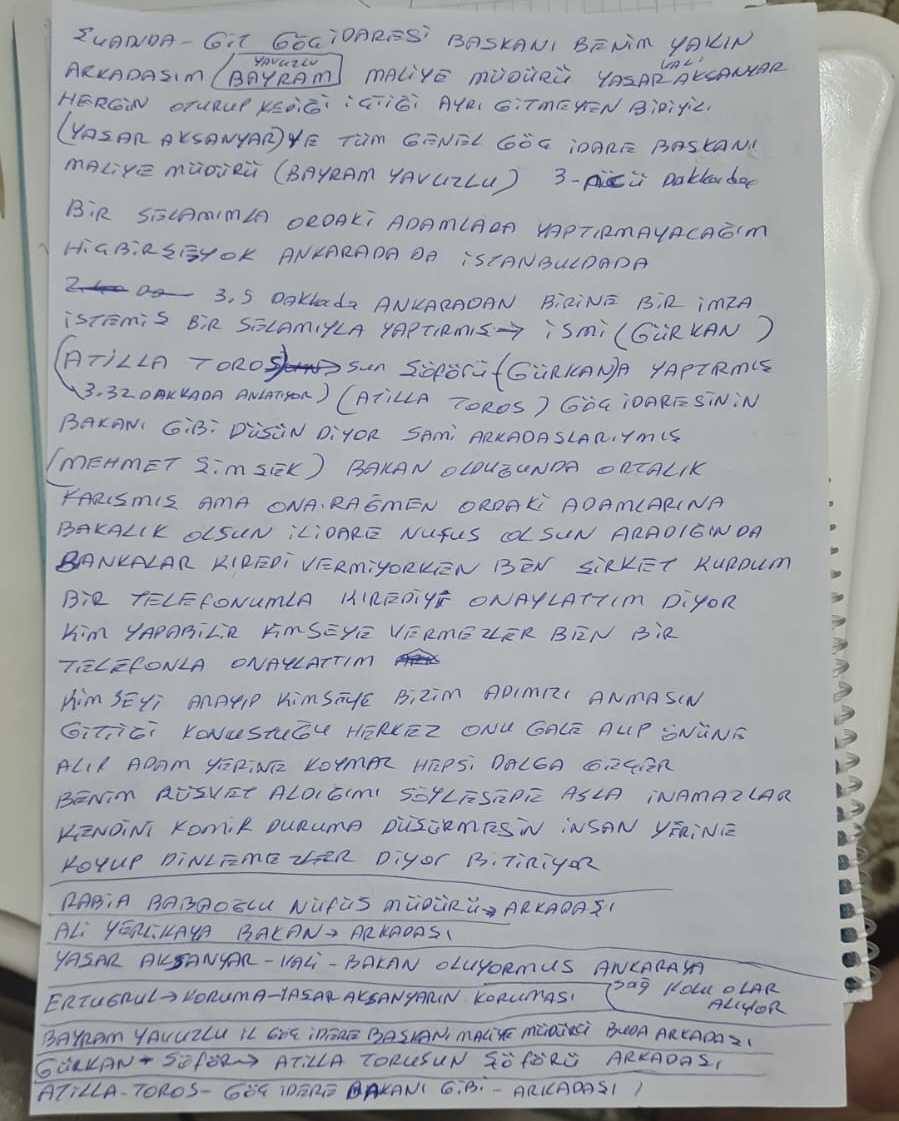 ŞUANDA - GİT GÖÇ İDARESİ BASKANI BENİM YAKIN
ARKADASIM (YAVUZLU BAYRAM) MALİYE MÜDÜRÜ VALİ YASAR AKSANYAR
HERGÜN OTURUP İÇTİĞİ AYRI GİTMEYEN BİRİYİZ.
(YASAR AKSANYAR)YE TÜM GENEL GÖÇ İDARE BASKANI
MALİYE MÜDÜRÜ (BAYRAM YAVUZLU) 3-ÜCÜ Dakkadac
BİR SELAMIMLA ORDAKİ ADAMLADA YAPTIRMAYACAĞIM
HİÇBİRSEYYOK ANKARADA DA İSTANBULDADA
3,5 Dakkada ANKARADAN BİRİNE BİR İMZA
İSTEMİS BİR SELAMIYLA YAPTIRMIS → İSMİ (GÜRKAN)
(ATİLLA TOROS) → sun Şöförü (GÜRKAN)A YAPTIRMIS
3.32 DAKKADA ANLATIYOR) (ATİLLA TOROS) GÖÇ İDARESİNİN
BAKANI GİBİ DÜSÜN DİYOR SAMİ ARKADASLARIYMIS
(MEHMET SİMSEK) BAKAN OLDUĞUNDA ORTALIK
KARISMIS AMA ONA RAĞMEN ORDAKİ ADAMLARINA
BAKALIK OLSUN İLİDARE NUFUS OLSUN ARADIGINDA
BANKALAR KIREDİ VERMİYORKEN BEN SİRKET KURDUM
BİR TELEFONUMLA KIREDİYİ ONAYLATTIM DİYOR
KİM YAPABİLİR KİMSEYE VERMEZLER BEN BİR
TELEFONLA ONAYLATTIM
KİMSEYİ ARAYIP KİMSEYE BİZİM ADIMIZI ANMASIN
GİTTİĞİ KONUSTUĞU HERKEZ ONU GALE ALIP ÖNÜNE
ALIR ADAM YERİNE KOYMAZ HEPSİ DALGA GEÇER
BENİM RÜSVET ALDIĞIMI SÖYLESEDE ASLA İNAMAZLAR
KENDİNİ KOMİK DURUMA DÜSÜRMESİN İNSAN YERİNE
KOYUP DİNLEMEZLER DİYOR BİTİRİYOR
RABİA BABAOĞLU NÜFÜS MÜDÜRÜ → ARKADAŞI
ALİ YERLİKAYA BAKAN → ARKADASI
YASAR AKSANYAR - VALİ - BAKAN OLUYORMUS ANKARAYA
ERTUGRUL → KORUMA - YASAR AKSANYARIN KORUMASI Sağ KOLU OLAR ALIYOR
BAYRAM YAVUZLU İL GÖÇ İDERE BASKANI MALİYE MÜDÜRÜ BUDA ARKADAŞI
GÜRKAN + SÖFÖR → ATİLLA TORUSUN ŞÖFÖRÜ ARKADAŞI
ATİLLA-TOROS - GÖÇ İDERE BAKANI GİBİ - ARKADAŞI)